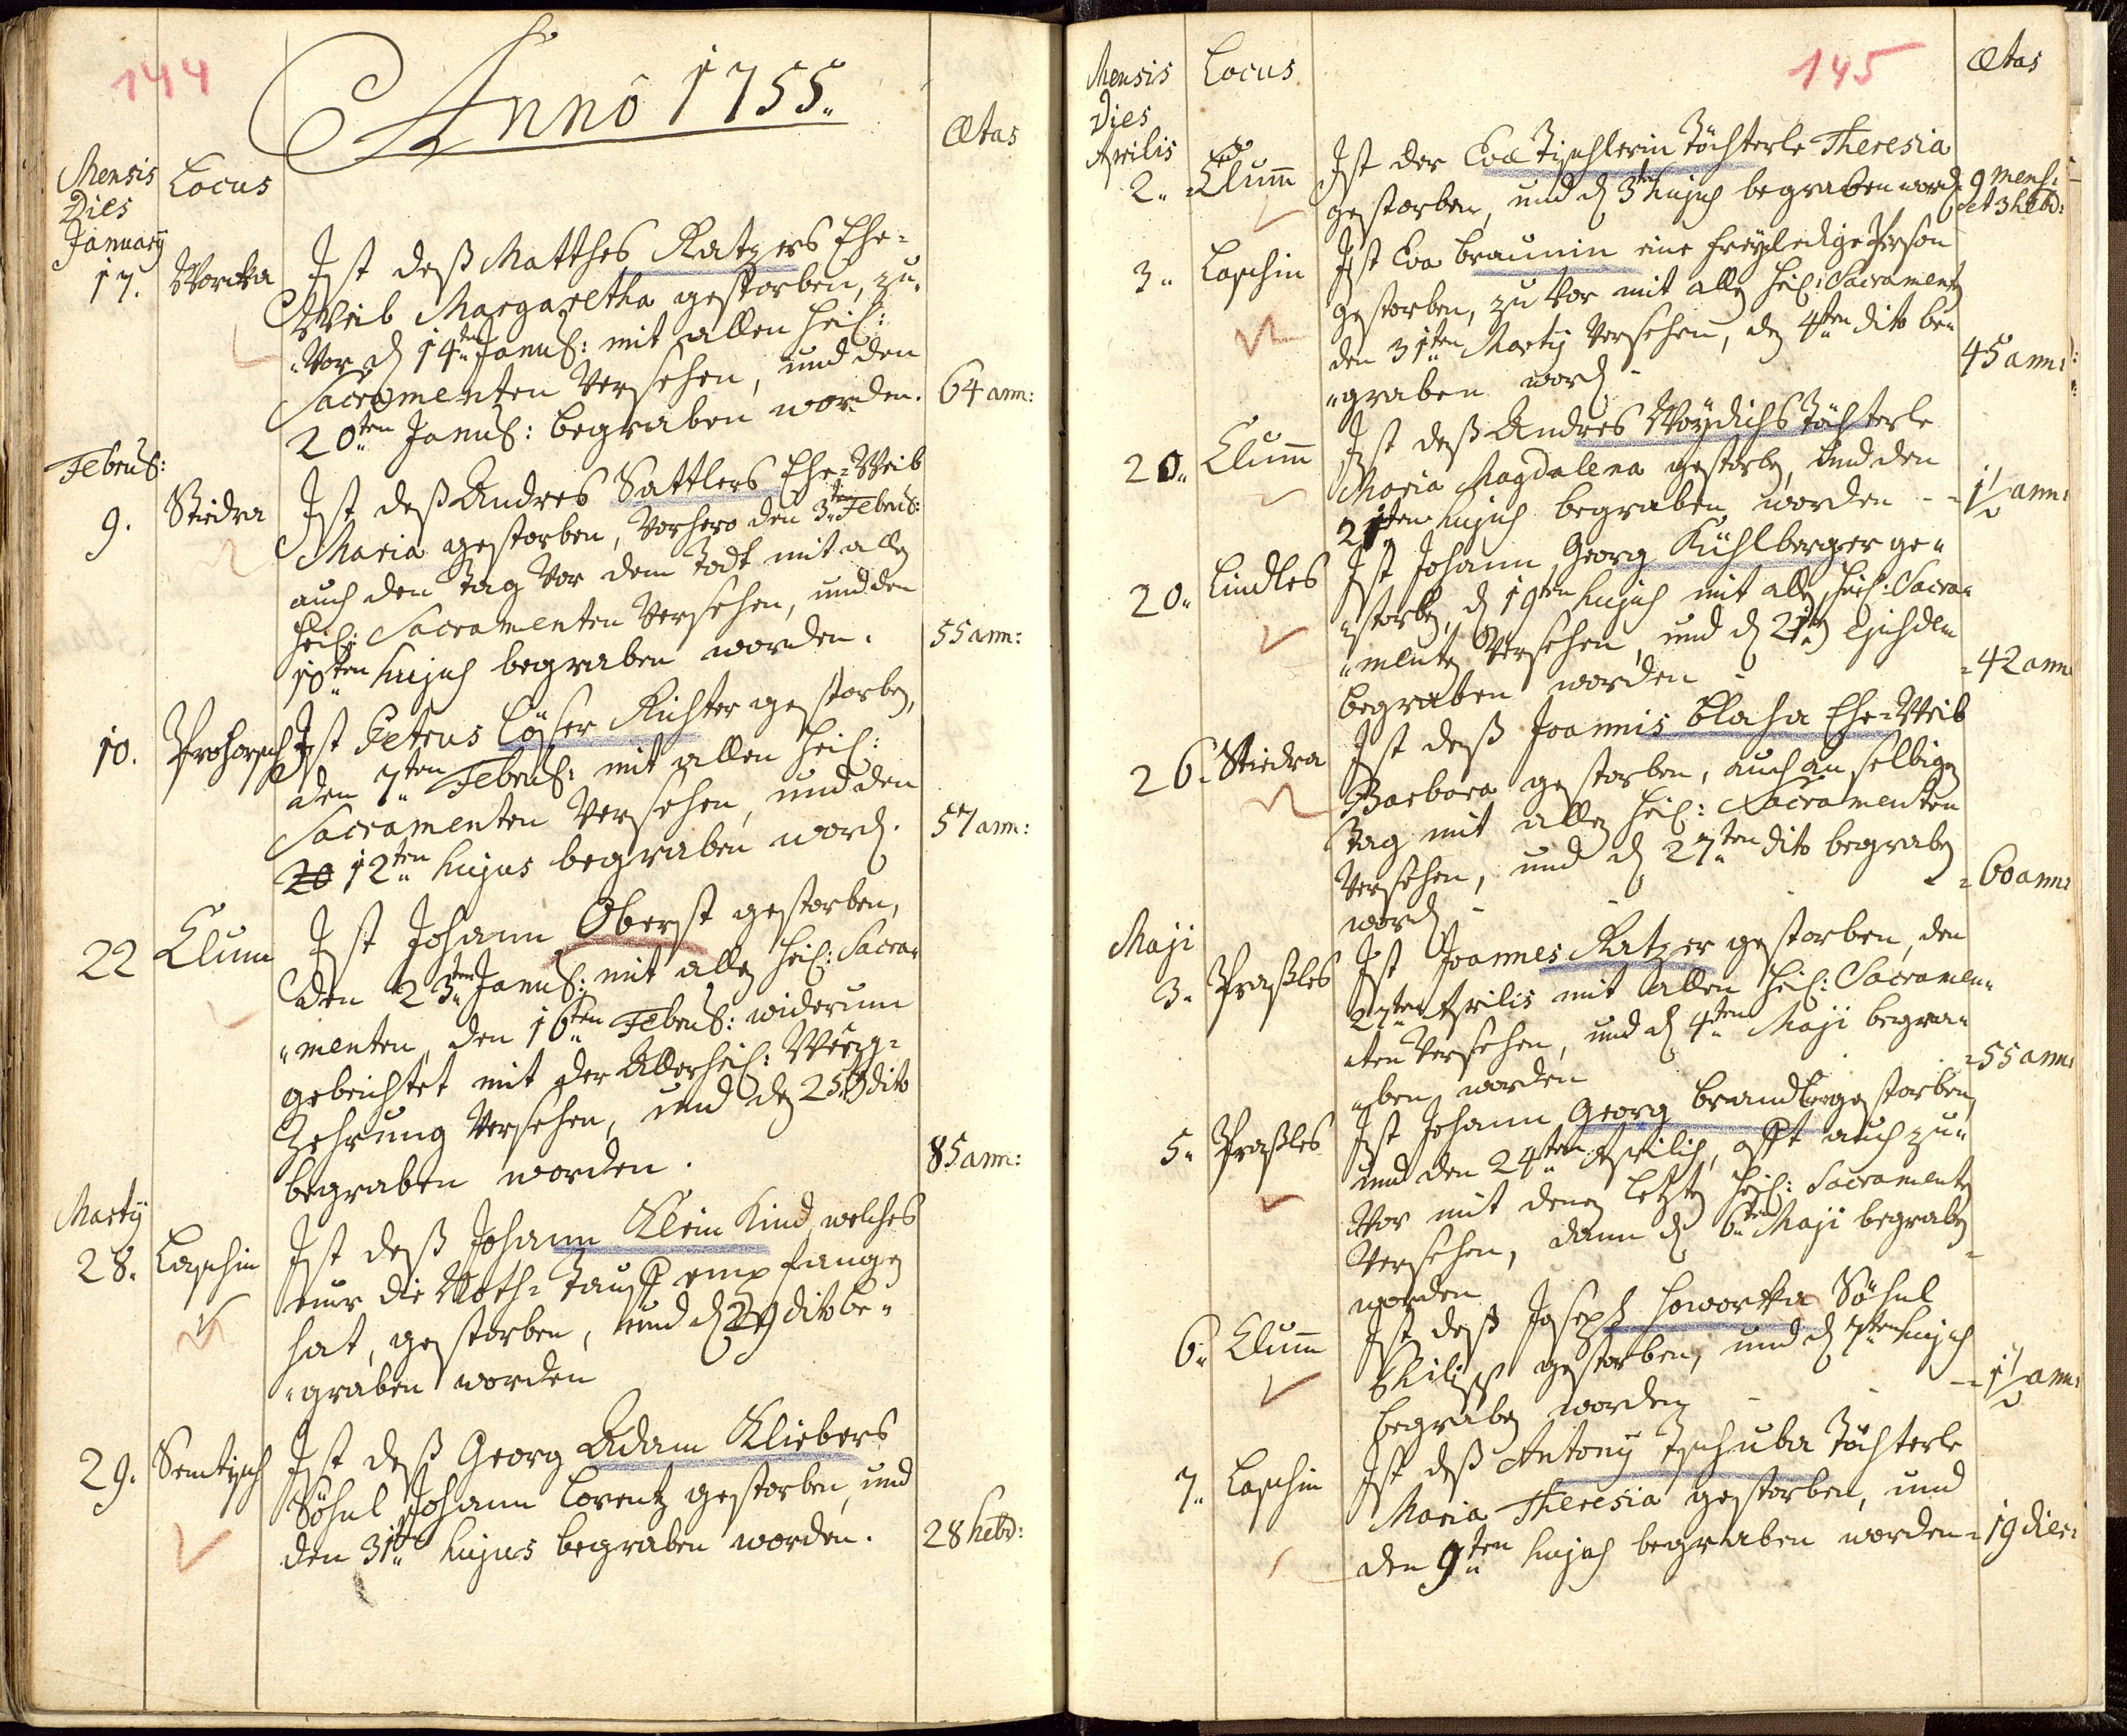 144
Anno 1755.
Ætas
Mensis
Dies
Locus
January
17. Worka Ist deß Matthes Ratzers Ehe-
Weib Margaretha gestorben, zu-
vor d 14ten Janus: mit allen heil:
Sacramenten Versehen, und den
20ten Janus: begraben worden. 64 ann:
Febru:
9. Stiedra Ist deß Andres Sattlers Ehe-Weib
Maria gestorben, vorhero den 3ten Febru:
auch den Tag vor dem Todt mit alle
heil: Sacramenten Versehen, und den
10ten hujus begraben worden. 55 ann:
10. Prohorsch Ist Petrus Löser Richter gestorben,
den 7ten Febru: mit allen heil:
Sacramenten Versehen, und den
20 12ten hujus begraben word. 57 ann:
22 Clum Ist Johann Oberst gestorben,
den 23ten Janu: mit alle heil: Sacra-
menten, den 16ten Febru: widerum
gebeichtet mit der Allerheil: Weeg-
Zehrung Versehen, und de 25 dito
begraben worden. 85 ann:
Marty
28. Laschin Ist deß Johann Klein Kind, welches
nur die Noth-Tauff empfangen
hat, gestorben, und d 29 dito be-
graben worden
29. Semtisch Ist deß Georg Adam Kliebers
Söhnl Johann Lorentz gestorben, und
den 31ten hujus begraben worden. 28 hebd:
145
Mensis
Dies
Locus
Ætas
Aprilis
2. Clum Ist der Eva Tischlerin Töchterle Theresia
gestorben, und d 3ten hujus begraben word 9 mens:
et 3 hebd:
3. Laschin Ist Eva Braunin eine freyledige Person
gestorben, zu vor mit alle heil: Sacramente
den 31ten Marty Versehen, de 4ten dito be-
graben word 45 ann:
20. Clum Ist deß Andres Woydichs Töchterle
Maria Magdalena gestorbe, und den
21ten hujus begraben worden - 1/2 ann:
20. Lindles Ist Johann Georg Kühlberger ge-
storbe, d 19ten hujus mit alle heil: Sacra-
mente Versehen, und d 21ten ejusdem
begraben worden - 42 ann
26. Stiedra Ist deß Joannis Blaha Ehe-Weib
Barbara gestorben, auch an selbige
Tag mit alle heil: Sacramenten
Versehen, und d 27ten dito begrabe
word - 60 ann:
Maji
3. Praßles Ist Joannes Ratzer gestorben, den
27ten Aprilis mit allen heil: Sacramen-
ten Versehen, und d 4ten Maji begra-
ben worden 55 ann:
5. Praßles Ist Johann Georg Brandler gestorben,
und den 24ten Aprilis, offt auch zu-
vor mit denen letzte heil: Sacramente
Versehen, dann d 6ten Maji begrabe
worden
6. Clum Ist deß Joseph Howorka Söhnl
Philipp gestorben, und d 7ten hujus
begrabe worden - 1/2 ann:
7. Laschin Ist deß Antony Tschuba Töchterle
Maria Theresia gestorben, und
den 9ten hujus begraben worden 19 dies: